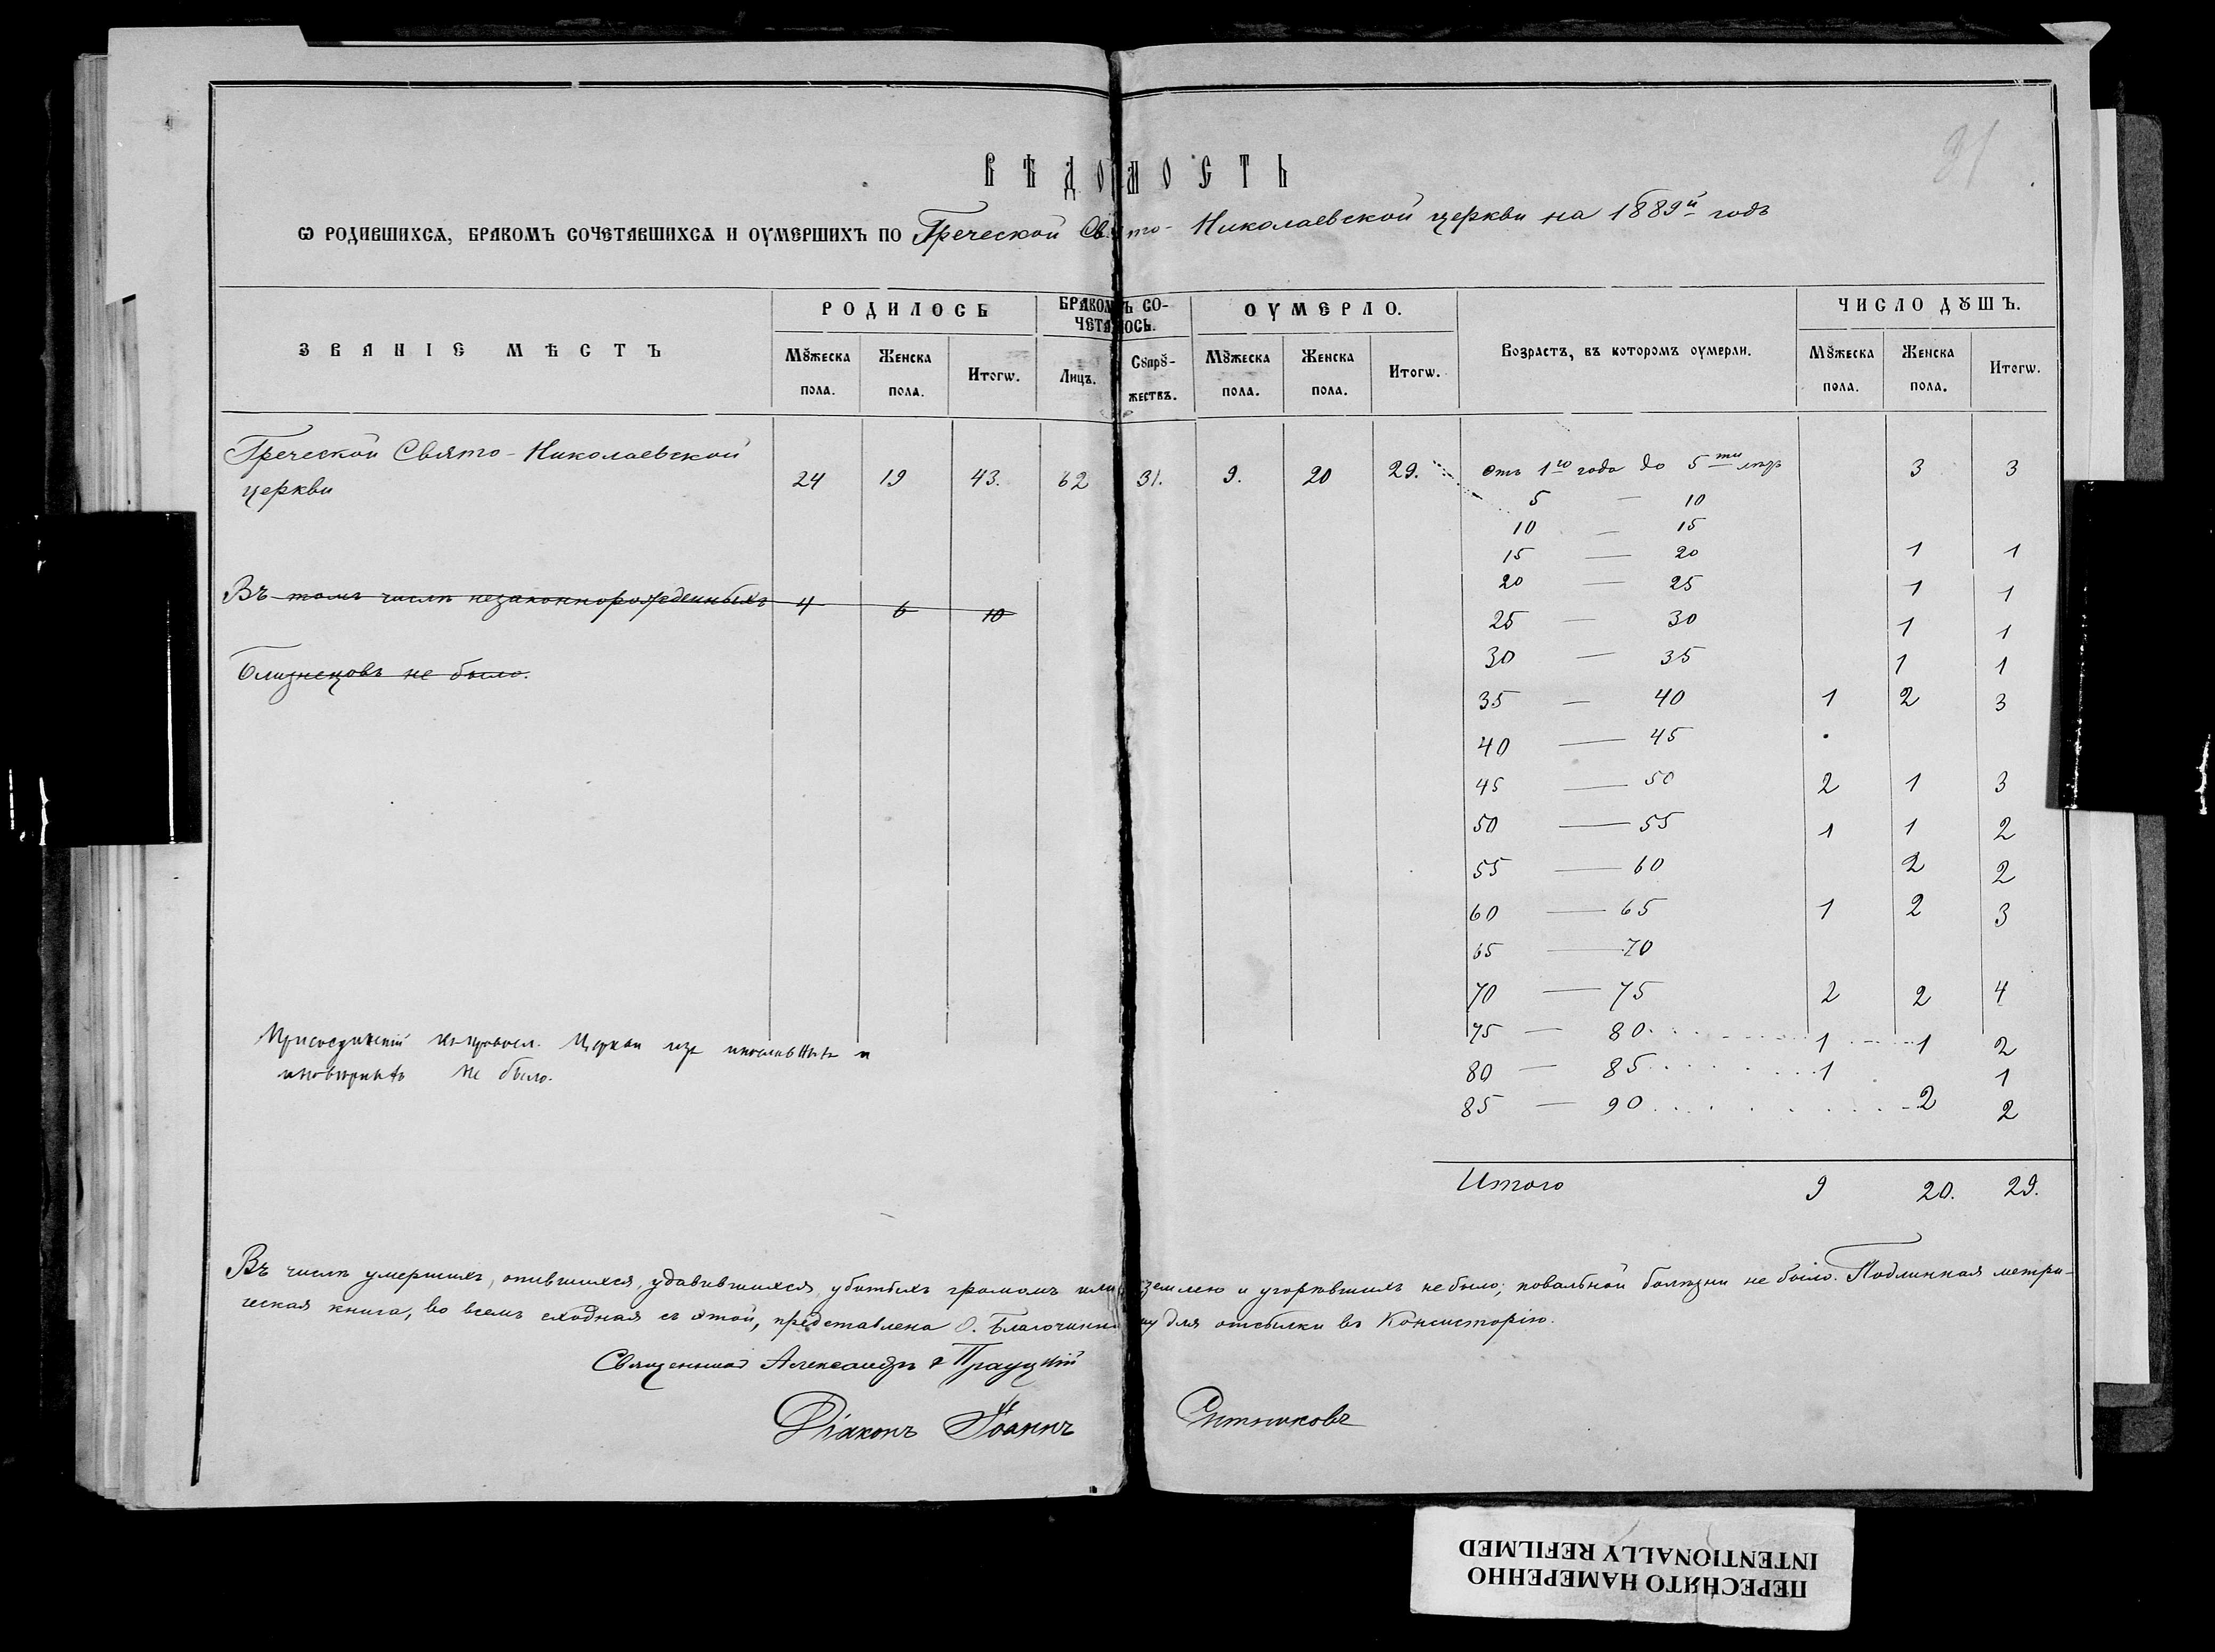 31
ВѢДОМОСТЬ
Ѡ РОДИВШИХСѦ, БРАКОМЪ СОЧЕТАВШИХСѦ И ОУМЕРШИХЪ ПО Греческой Свято-Николаевской церкви на 1889й годъ
ЗВАНІЕ МѢСТЪ
РОДИЛОСЬ
БРАКОМЪ СО-
ЧЕТАЛОСЬ.
ОУМЕРЛО.
Возрастъ, въ которомъ оумерли.
ЧИСЛО ДꙊШЪ.
Мꙋжеска пола.
Женска пола.
Итогѡ.
Лицъ.
Сꙋпрꙋ-
жествъ.
Мꙋжеска пола.
Женска пола.
Итогѡ.
Мꙋжеска пола.
Женска пола.
Итогѡ.
Греческой Свято-Николаевской
церкви
24 19 43. 62 31. 9. 20 29.
Въ томъ числѣ незаконнорожденныхъ 4 6 10
Близнецовъ не было.
отъ 1го года до 5ти лѣтъ 3 3
5 — 10
10 — 15
15 — 20 1 1
20 — 25 1 1
25 — 30 1 1
30 — 35 1 1
35 — 40 1 2 3
40 — 45
45 — 50 2 1 3
50 — 55 1 1 2
55 — 60 2 2
60 — 65 1 2 3
65 — 70
70 — 75 2 2 4
75 — 80 1 1 2
80 — 85 1 1
85 — 90 2 2
Итого 9 20. 29.
Присоединеній къ правосл. Церкви изъ инославныхъ и
иновѣрныхъ не было.
Въ числѣ умершихъ, опившихся, удавившихся, убитыхъ громомъ или землею и угорѣвшихъ не было; повальной болѣзни не было. Подлинная метри-
ческая книга, во всемъ сходная съ этой, представлена О. Благочинному для отсылки въ Консисторію.
Священникъ Александръ
Діаконъ Іоаннъ Ситниковъ
ПЕРЕСНЯТО НАМЕРЕННО
INTENTIONALLY REFILMED